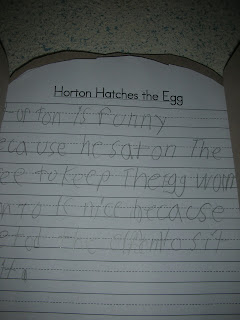 Horton Hatches the Egg
orton is funny
ecause he sat on The
ee to keep The gg warm
n to Is nice because
e tol the to sit